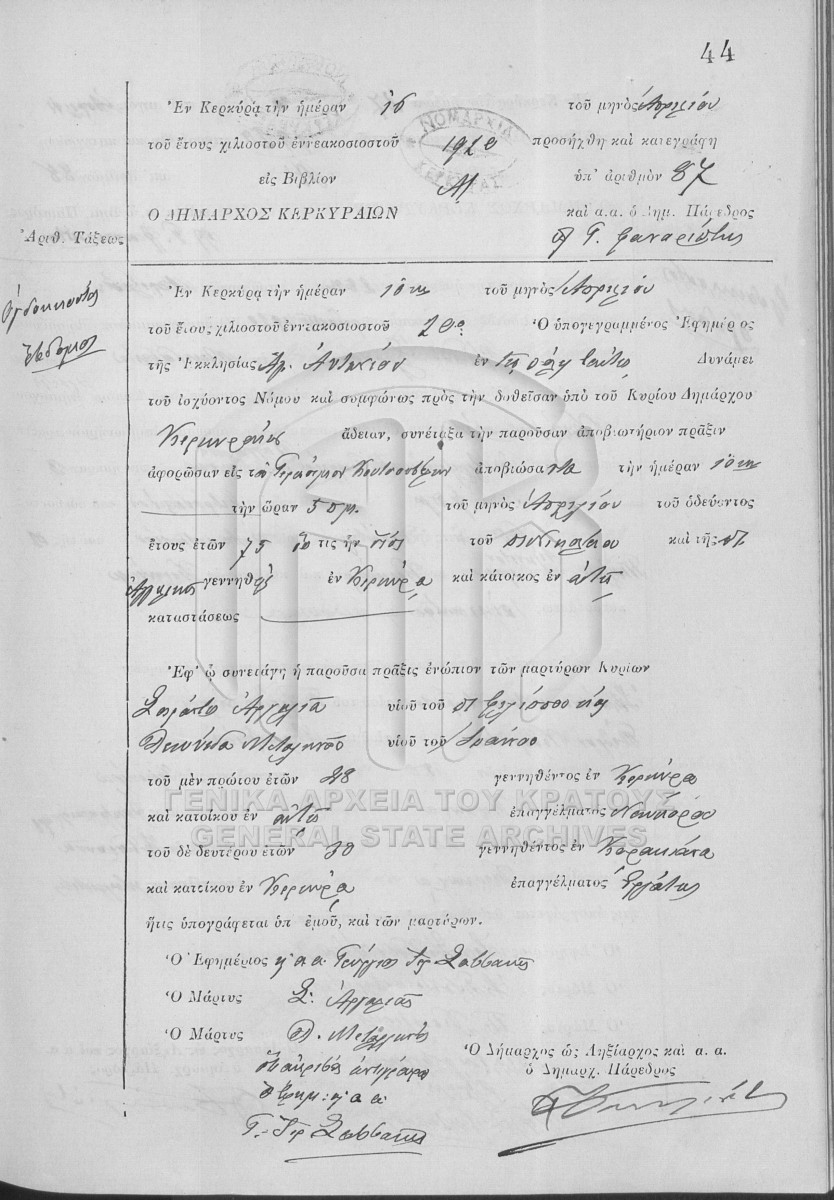 44
Ἐν Κερκύρᾳ τὴν ἡμέραν 16 τοῦ μηνὸς Ἀπριλίου
τοῦ ἔτους χιλιοστοῦ ἐννεακοσιοστοῦ 1920 προσήχθη καὶ κατεγράφη
ΝΟΜΑΡΧΙΑ ΚΕΡΚΥΡΑΣ
εἰς Βιβλίον Α1 ὑπ' ἀριθμὸν 87
Ο ΔΗΜΑΡΧΟΣ ΚΕΡΚΥΡΑΙΩΝ καὶ α.α. ὁ Δημ. Πάρεδρος
Ἀριθ. Τάξεως
Γ. Φαναριώτης
Ὀγδοηκοστὸς
ἕβδομος
Ἐν Κερκύρᾳ τὴν ἡμέραν 10ην τοῦ μηνὸς Ἀπριλίου
τοῦ ἔτους χιλιοστοῦ ἐννεακοσιοστοῦ 20οῦ Ὁ ὑπογεγραμμένος Ἐφημέριος
τῆς Ἐκκλησίας Ἁγ. Ἀντωνίου ἐν τῇ πόλει ταύτῃ Δυνάμει
τοῦ ἰσχύοντος Νόμου καὶ συμφώνως πρὸς τὴν δοθεῖσαν ὑπὸ τοῦ Κυρίου Δημάρχου
Κερκυραίων ἄδειαν, συνέταξα τὴν παροῦσαν ἀποβιωτήριον πρᾶξιν
ἀφορῶσαν εἰς τὸν Γεράσιμον ἀποβιώσαντα τὴν ἡμέραν 10ην
τὴν ὥραν 5 π.μ. τοῦ μηνὸς Ἀπριλίου τοῦ ὁδεύοντος
ἔτους ἐτῶν 75 ὅστις ἦν υἱὸς τοῦ π. Νικολάου καὶ τῆς π.
Ἀγγελικῆς γεννηθεὶς ἐν Κερκύρᾳ καὶ κάτοικος ἐν αὐτῇ
καταστάσεως
Ἐφ' ᾧ συνετάγη ἡ παροῦσα πρᾶξις ἐνώπιον τῶν μαρτύρων Κυρίων
Ἀργαλιᾶ υἱοῦ τοῦ π.
Λεωνίδα Μεταλληνοῦ υἱοῦ τοῦ Ἰωάννου
τοῦ μὲν πρώτου ἐτῶν 28 γεννηθέντος ἐν Κερκύρᾳ
ΓΕΝΙΚΑ ΑΡΧΕΙΑ ΤΟΥ ΚΡΑΤΟΥΣ
καὶ κατοίκου ἐν αὐτῇ ἐπαγγέλματος
GENERAL STATE ARCHIVES
τοῦ δὲ δευτέρου ἐτῶν 30 γεννηθέντος ἐν
καὶ κατοίκου ἐν Κερκύρᾳ ἐπαγγέλματος Ἐργάτης
ἥτις ὑπογράφεται ὑπ' ἐμοῦ, καὶ τῶν μαρτύρων.
Ὁ Ἐφημέριος Γεώργιος Σαββανης
Ὁ Μάρτυς Σ. Ἀργαλιᾶς
Ὁ Μάρτυς Λ. Μεταλληνὸς
Ὁ Δήμαρχος ὡς Ληξίαρχος καὶ α. α.
ὁ Δημαρχ. Πάρεδρος